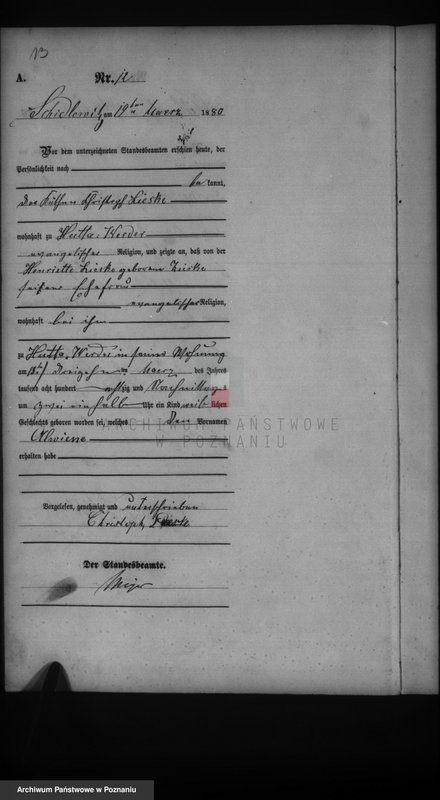 13
A.
Nr. 12
Schidlowitz am 19ten Maerz 1880
Vor dem unterzeichneten Standesbeamten erschien heute, der
Persönlichkeit nach
be kannt,
Christoph Lieske
wohnhaft zu Hutta-Werder
evangelischer Religion, und zeigte an, daß von der
Henriette Lieske geborene Lieske
seiner Ehefrau
evangelischer Religion,
wohnhaft bei ihm
zu Hutta-Werder in seiner Wohnung
am Maerz des Jahres
tausend acht hundert achtzig und Vormittags
um zwei ein halb Uhr ein Kind weib lichen
Geschlechts geboren worden sei, welches den Vornamen
Alwiene
erhalten habe
Vorgelesen, genehmigt und unterschrieben
Christoph
Der Standesbeamte.
ARCHIWUM PAŃSTWOWE
W POZNANIU
Archiwum Państwowe w Poznaniu